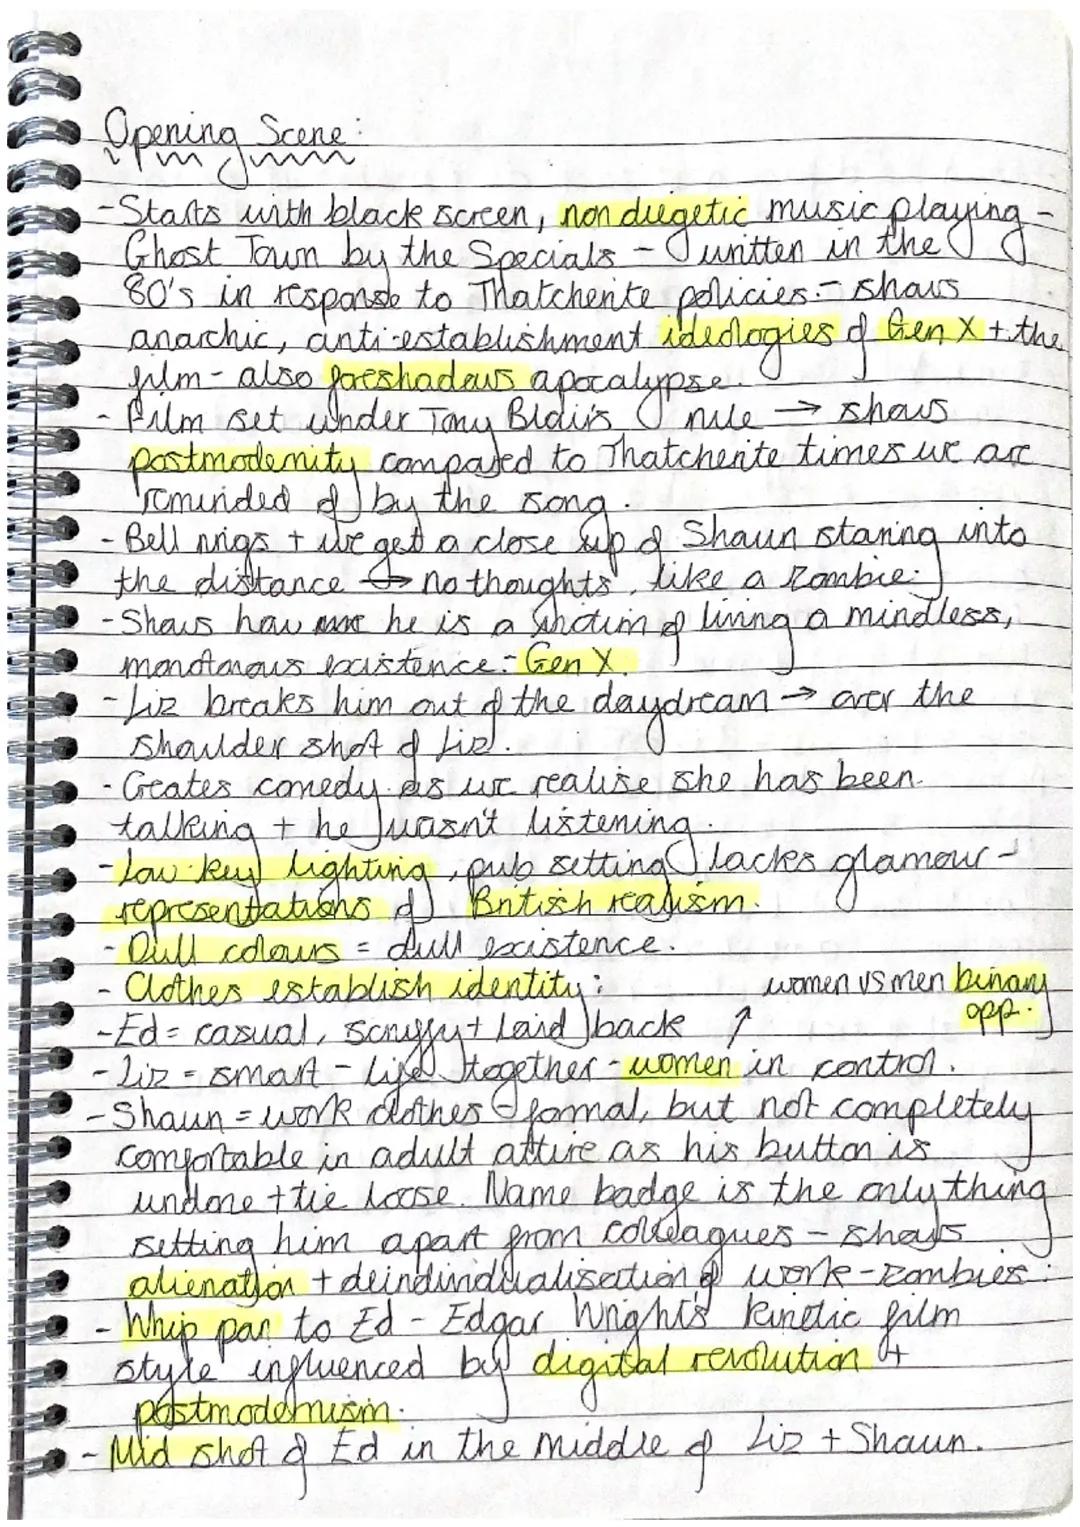 Opening Scene:
- Starts with black screen, non diegetic music playing -
Ghost Town by the Specials - written in the
80's in response to Thatcherite policies - shows
anarchic, anti-establishment ideologies of Gen X + the
film - also foreshadows apocalypse.
- Film set under Tony Blair's rule → shows
postmodernity compared to Thatcherite times we are
reminded of by the song.
- Bell rings + we get a close up of Shaun staring into
the distance → no thoughts, like a zombie.
- Shows how he is a victim of living a mindless,
monotonous existence - Gen X.
- Liz breaks him out of the daydream → over the
shoulder shot of Liz.
- Creates comedy as we realise she has been
talking + he wasn't listening.
- Low-key lighting, pub setting lacks glamour -
representations of British realism.
- Dull colours = dull existence.
- Clothes establish identity:
women vs men binary
opp.
- Ed = casual, scruffy + laid back ↑
- Liz = smart - life together - women in control.
- Shaun = work clothes - formal, but not completely
comfortable in adult attire as his button is
undone + tie loose. Name badge is the only thing
setting him apart from colleagues - shows
alienation + deindindualisation of work-zombies.
- Whip pan to Ed - Edgar Wright's kinetic film
style influenced by digital revolution +
postmodernism.
- Mid shot of Ed in the middle of Liz + Shaun.